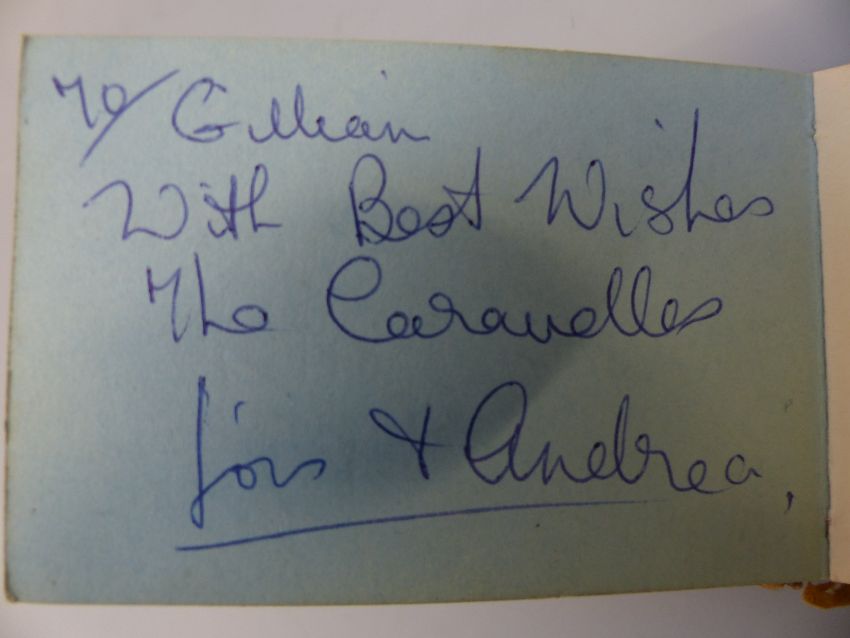 To/ Gillian
With Best Wishes
The Caravelles
Lois & Andrea,